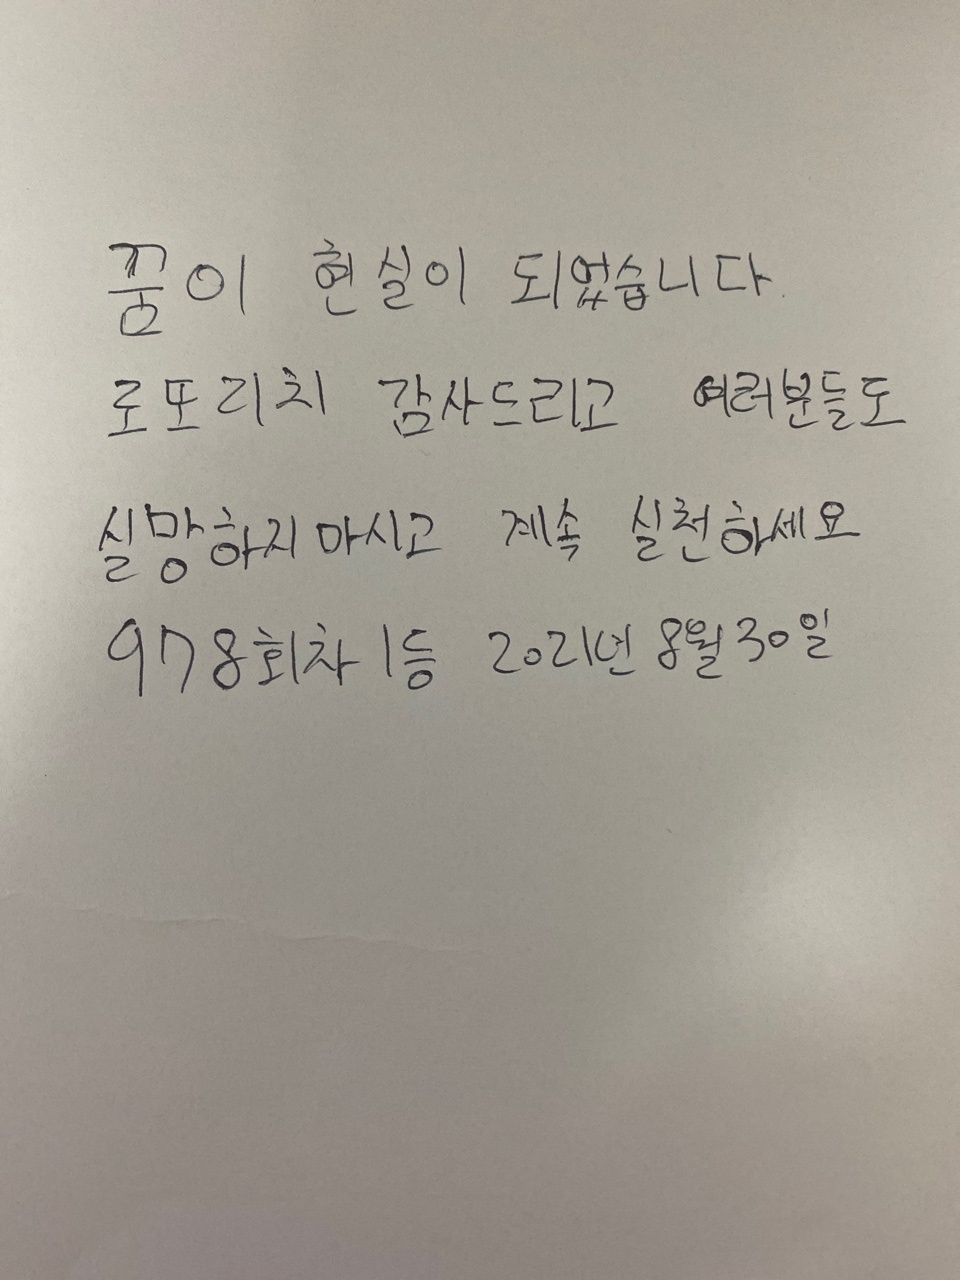 꿈이 현실이 되었습니다
로또리치 감사드리고 여러분들도
실망하지 마시고 계속 실천하세요
978회차 1등 2021년 8월 30일